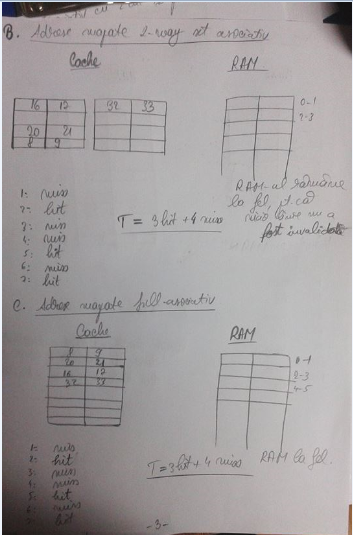 B. Adrese mapate 2-way set asociativ
Cache
RAM
16 17
32 33
0-1
2-3
20 21
8 9
1: miss
2: hit
3: miss
4: miss
5: hit
6: miss
7: hit
T = 3 hit + 4 miss
RAM-ul rămâne
la fel, pt. că
nicio linie nu a
fost invalidată
C. Adrese mapate full-asociativ
Cache
RAM
8 9
20 21
16 17
32 33
0-1
2-3
4-5
1: miss
2: hit
3: miss
4: miss
5: hit
6: miss
7: hit
T = 3 hit + 4 miss
RAM la fel.
-3-